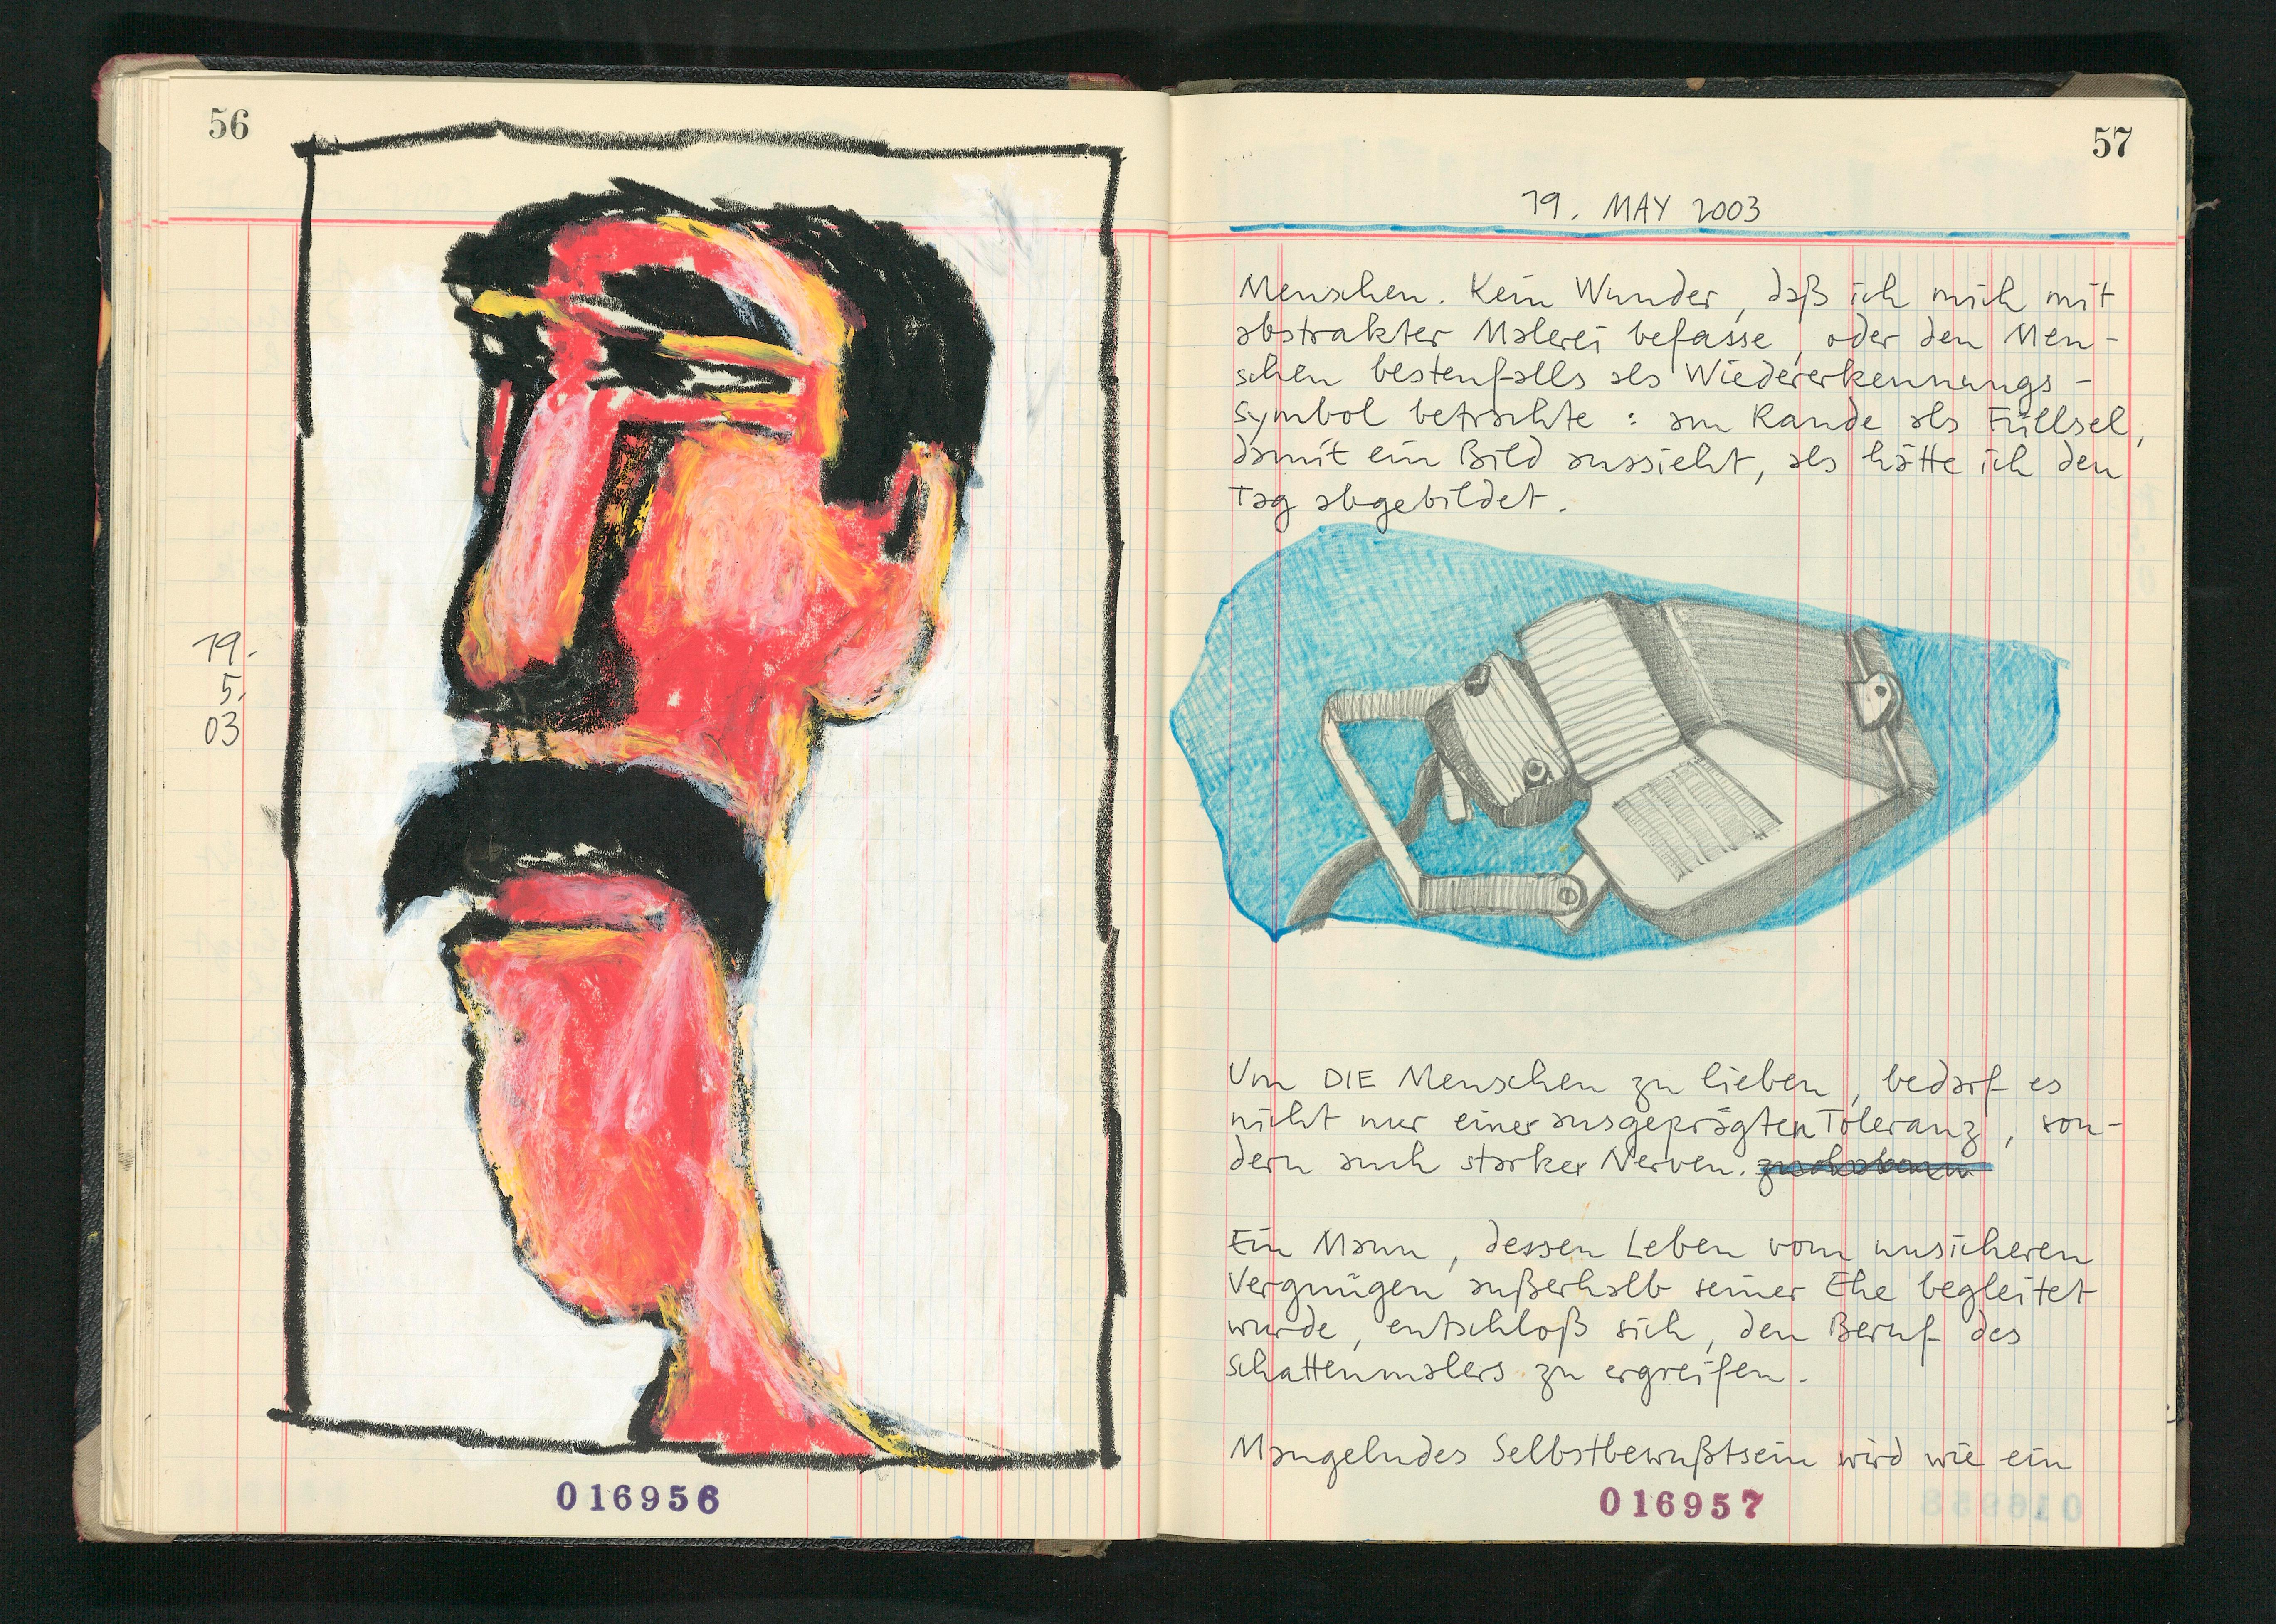 56
19.
5.
03
016956
57
19. MAY 2003
Menschen. Kein Wunder, daß ich mich mit
abstrakter Malerei befasse, oder den Men-
schen bestenfalls als Wiedererkennungs-
symbol betrachte: am Rande als Füllsel,
damit ein Bild aussieht, als hätte ich den
Tag abgebildet.
Um DIE Menschen zu lieben, bedarf es
nicht nur einer ausgeprägten Toleranz, son-
dern auch starker Nerven.
Ein Mann, dessen Leben vom unsicheren
Vergnügen außerhalb seiner Ehe begleitet
wurde, entschloß sich, den Beruf des
Schattenmalers zu ergreifen.
Mangelndes Selbstbewußtsein wird wie ein
016957